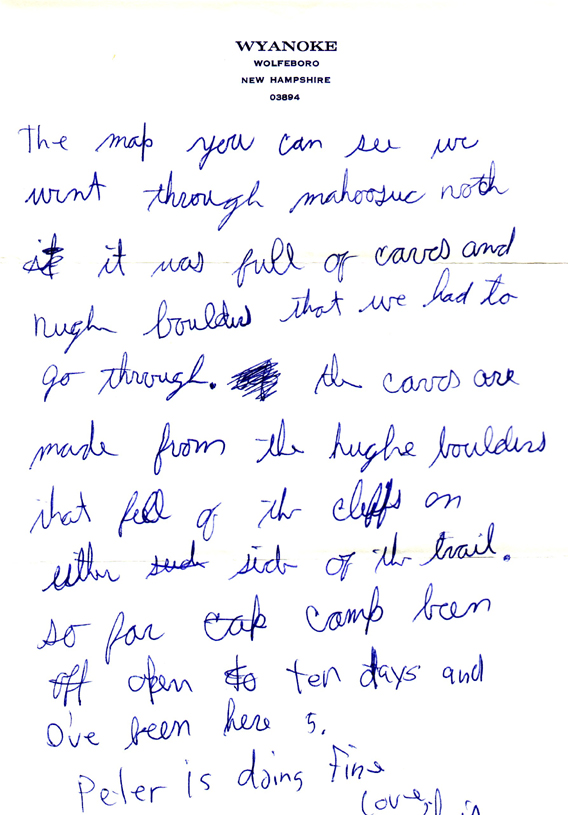 WYANOKE
WOLFEBORO
NEW HAMPSHIRE
03894
The map you can see we
went through mahoosuc noth
it it was full of caves and
hughe boulders that we had to
go through. the caves are
made from the hughe boulders
that fell of the cliffs on
either side of the trail.
so far cap camp been
off open to ten days and
I've been here 5.
Peter is doing fine